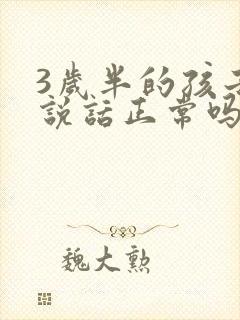 3歲半的孩子
說話正常嗎
魏大勲